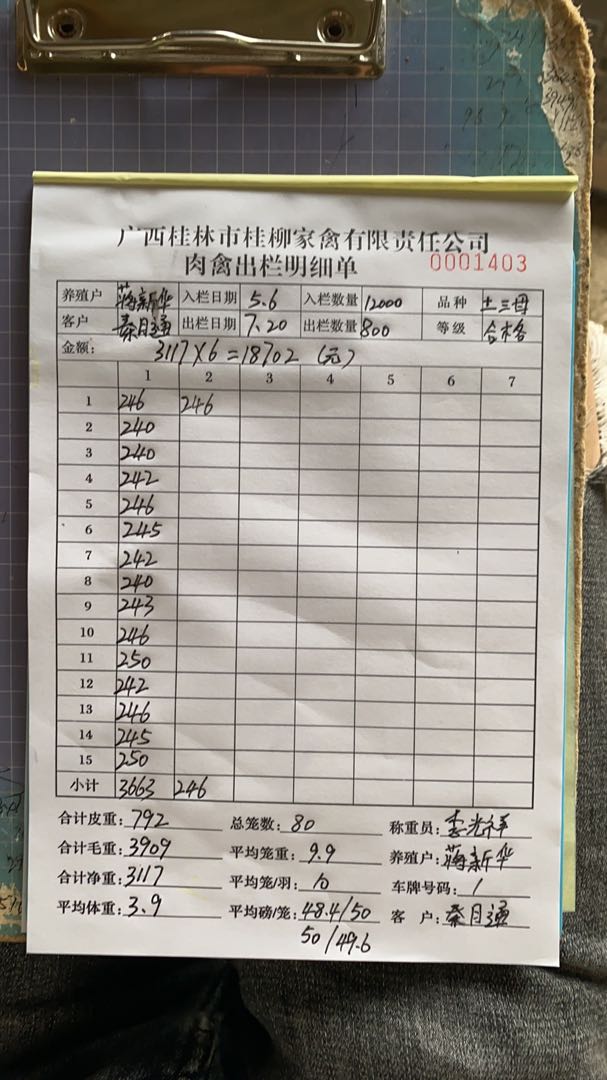 广西桂林市桂柳家禽有限责任公司
肉禽出栏明细单 0001403
养殖户 蒋新华 入栏日期 5.6 入栏数量 12000 品种 土三母
客户 秦月通 出栏日期 7.20 出栏数量 800 等级 合格
金额: 3117×6=18702 (元)
1 2 3 4 5 6 7
1 246 246
2 240
3 240
4 242
5 246
6 245
7 242
8 240
9 243
10 246
11 250
12 242
13 246
14 245
15 250
小计 3663 246
合计皮重: 792 总笼数: 80 称重员: 李光祥
合计毛重: 3909 平均笼重: 9.9 养殖户: 蒋新华
合计净重: 3117 平均笼/羽: 10 车牌号码: /
平均体重: 3.9 平均磅/笼: 48.4/50 客户: 秦月通
50/49.6